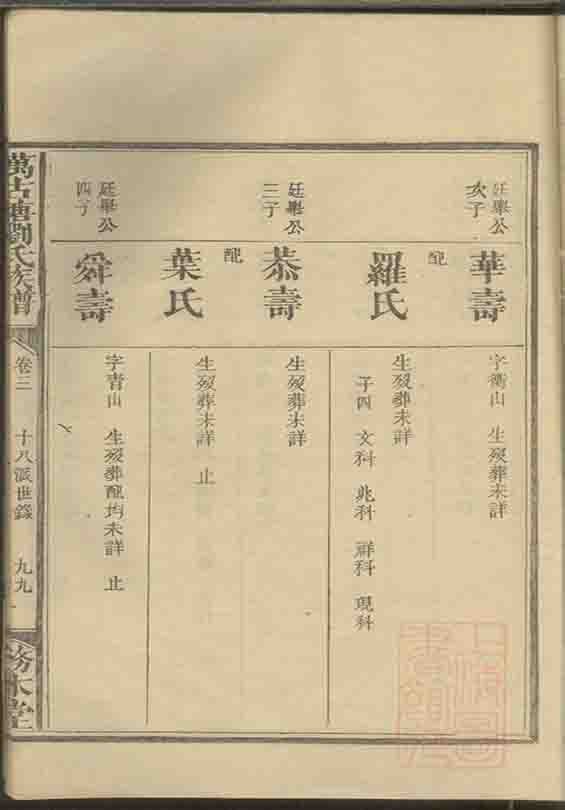 廷舉公
次子
華壽
字衡山 生歿葬未詳
配
羅氏
生歿葬未詳
子四 文科 兆科 群科 現科
廷舉公
三子
恭壽
生歿葬未詳
配
葉氏
生歿葬未詳 止
廷舉公
四子
舜壽
字青山 生歿葬配均未詳 止
萬古塘劉氏族譜
卷三 十八派世錄 九九
務本堂